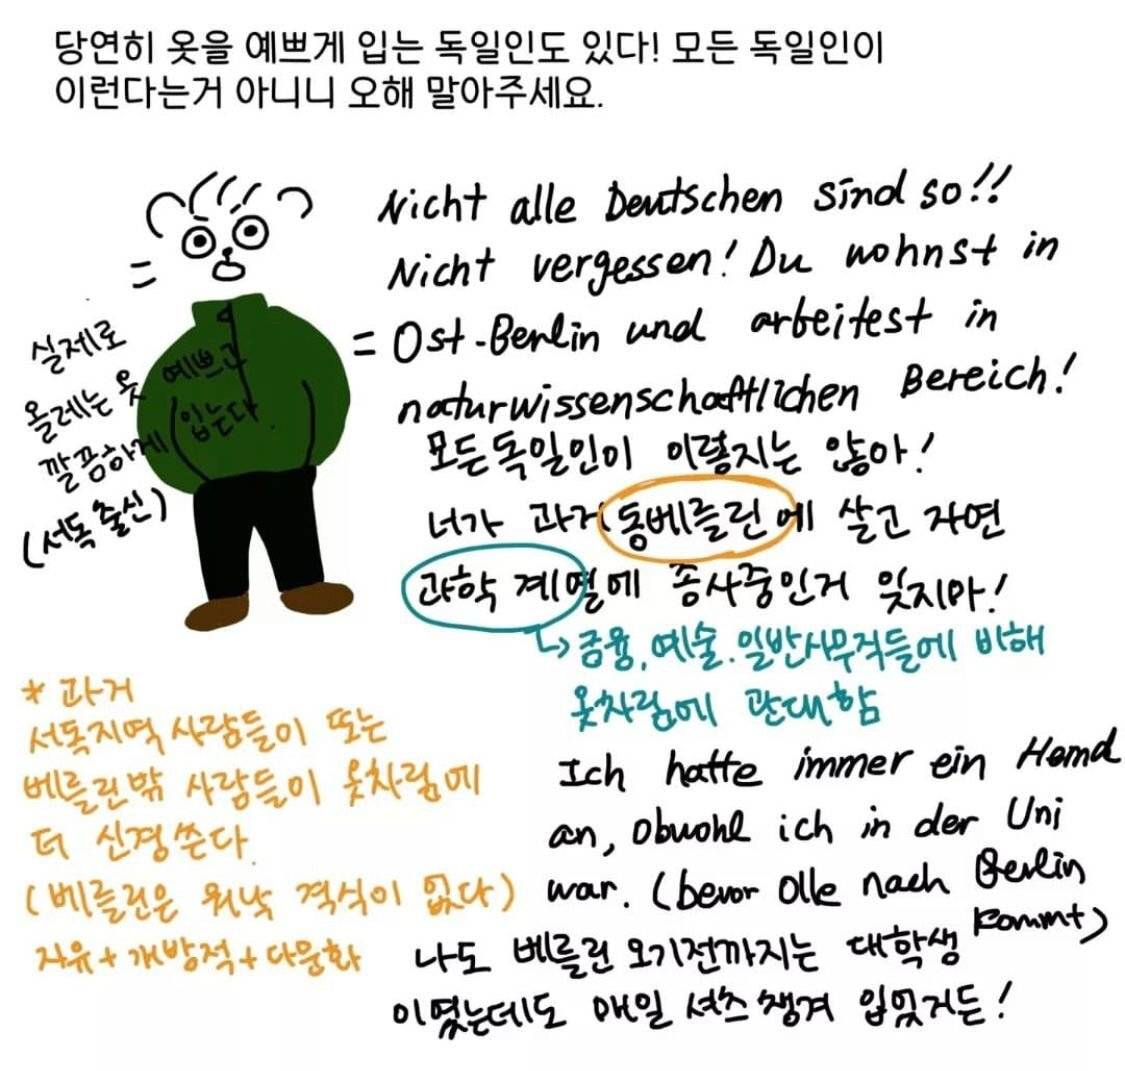 당연히 옷을 예쁘게 입는 독일인도 있다! 모든 독일인이
이런다는거 아니니 오해 말아주세요.
Nicht alle Deutschen sind so!!
Nicht vergessen! Du wohnst in
Ost-Berlin und arbeitest in
naturwissenschaftlichen Bereich!
모든독일인이 이렇지는 않아!
너가 과거 동베를린에 살고 자연
과학 계열에 종사중인거 잊지마!
↳ 금융, 예술. 일반사무직들에 비해
옷차림에 관대함
실제로
올레는 옷 예쁘고
깔끔하게 입는다.
(서독 출신)
* 과거
서독지역 사람들이 또는
베를린밖 사람들이 옷차림에
더 신경쓴다.
(베를린은 워낙 격식이 없다)
자유+개방적+다문화
Ich hatte immer ein Hemd
an, obwohl ich in der Uni
war. (bevor Olle nach Berlin
kommt)
나도 베를린 오기전까지는 대학생
이였는데도 매일 셔츠 챙겨 입었거든!